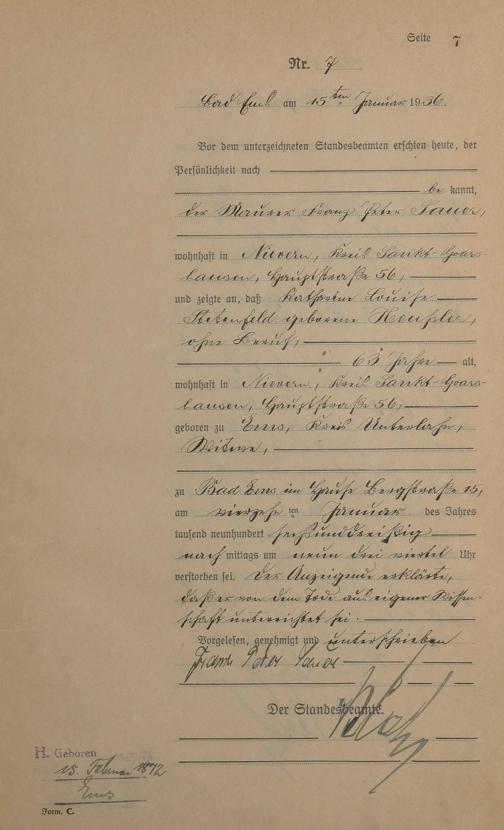 Seite 7
Nr. 7
Bad Ems am 15ten Januar 1936.
Vor dem unterzeichneten Standesbeamten erschien heute, der
Persönlichkeit nach
be kannt,
der Maurer Franz Peter Sauer,
wohnhaft in Nievern, Kreis Sankt-Goars-
hausen, Hauptstraße 56,
und zeigte an, daß Katharine Louise
geborene
ohne Beruf,
63 Jahre alt,
wohnhaft in Nievern, Kreis Sankt-Goars-
hausen, Hauptstraße 56,
geboren zu Ems, Kreis Unterlahn,
Witwe,
zu Bad Ems im Hause Bergstraße 15,
am vierzehnten Januar des Jahres
tausend neunhundert sechsunddreißig
nachmittags um neun drei viertel Uhr
verstorben sei. Der Anzeigende erklärte,
daß er von dem Tode aus eigener Wissen-
schaft unterrichtet sei.
Vorgelesen, genehmigt und unterschrieben
Franz Peter Sauer
Der Standesbeamte.
H. Geboren
15. Februar 1872
Ems
Form. C.